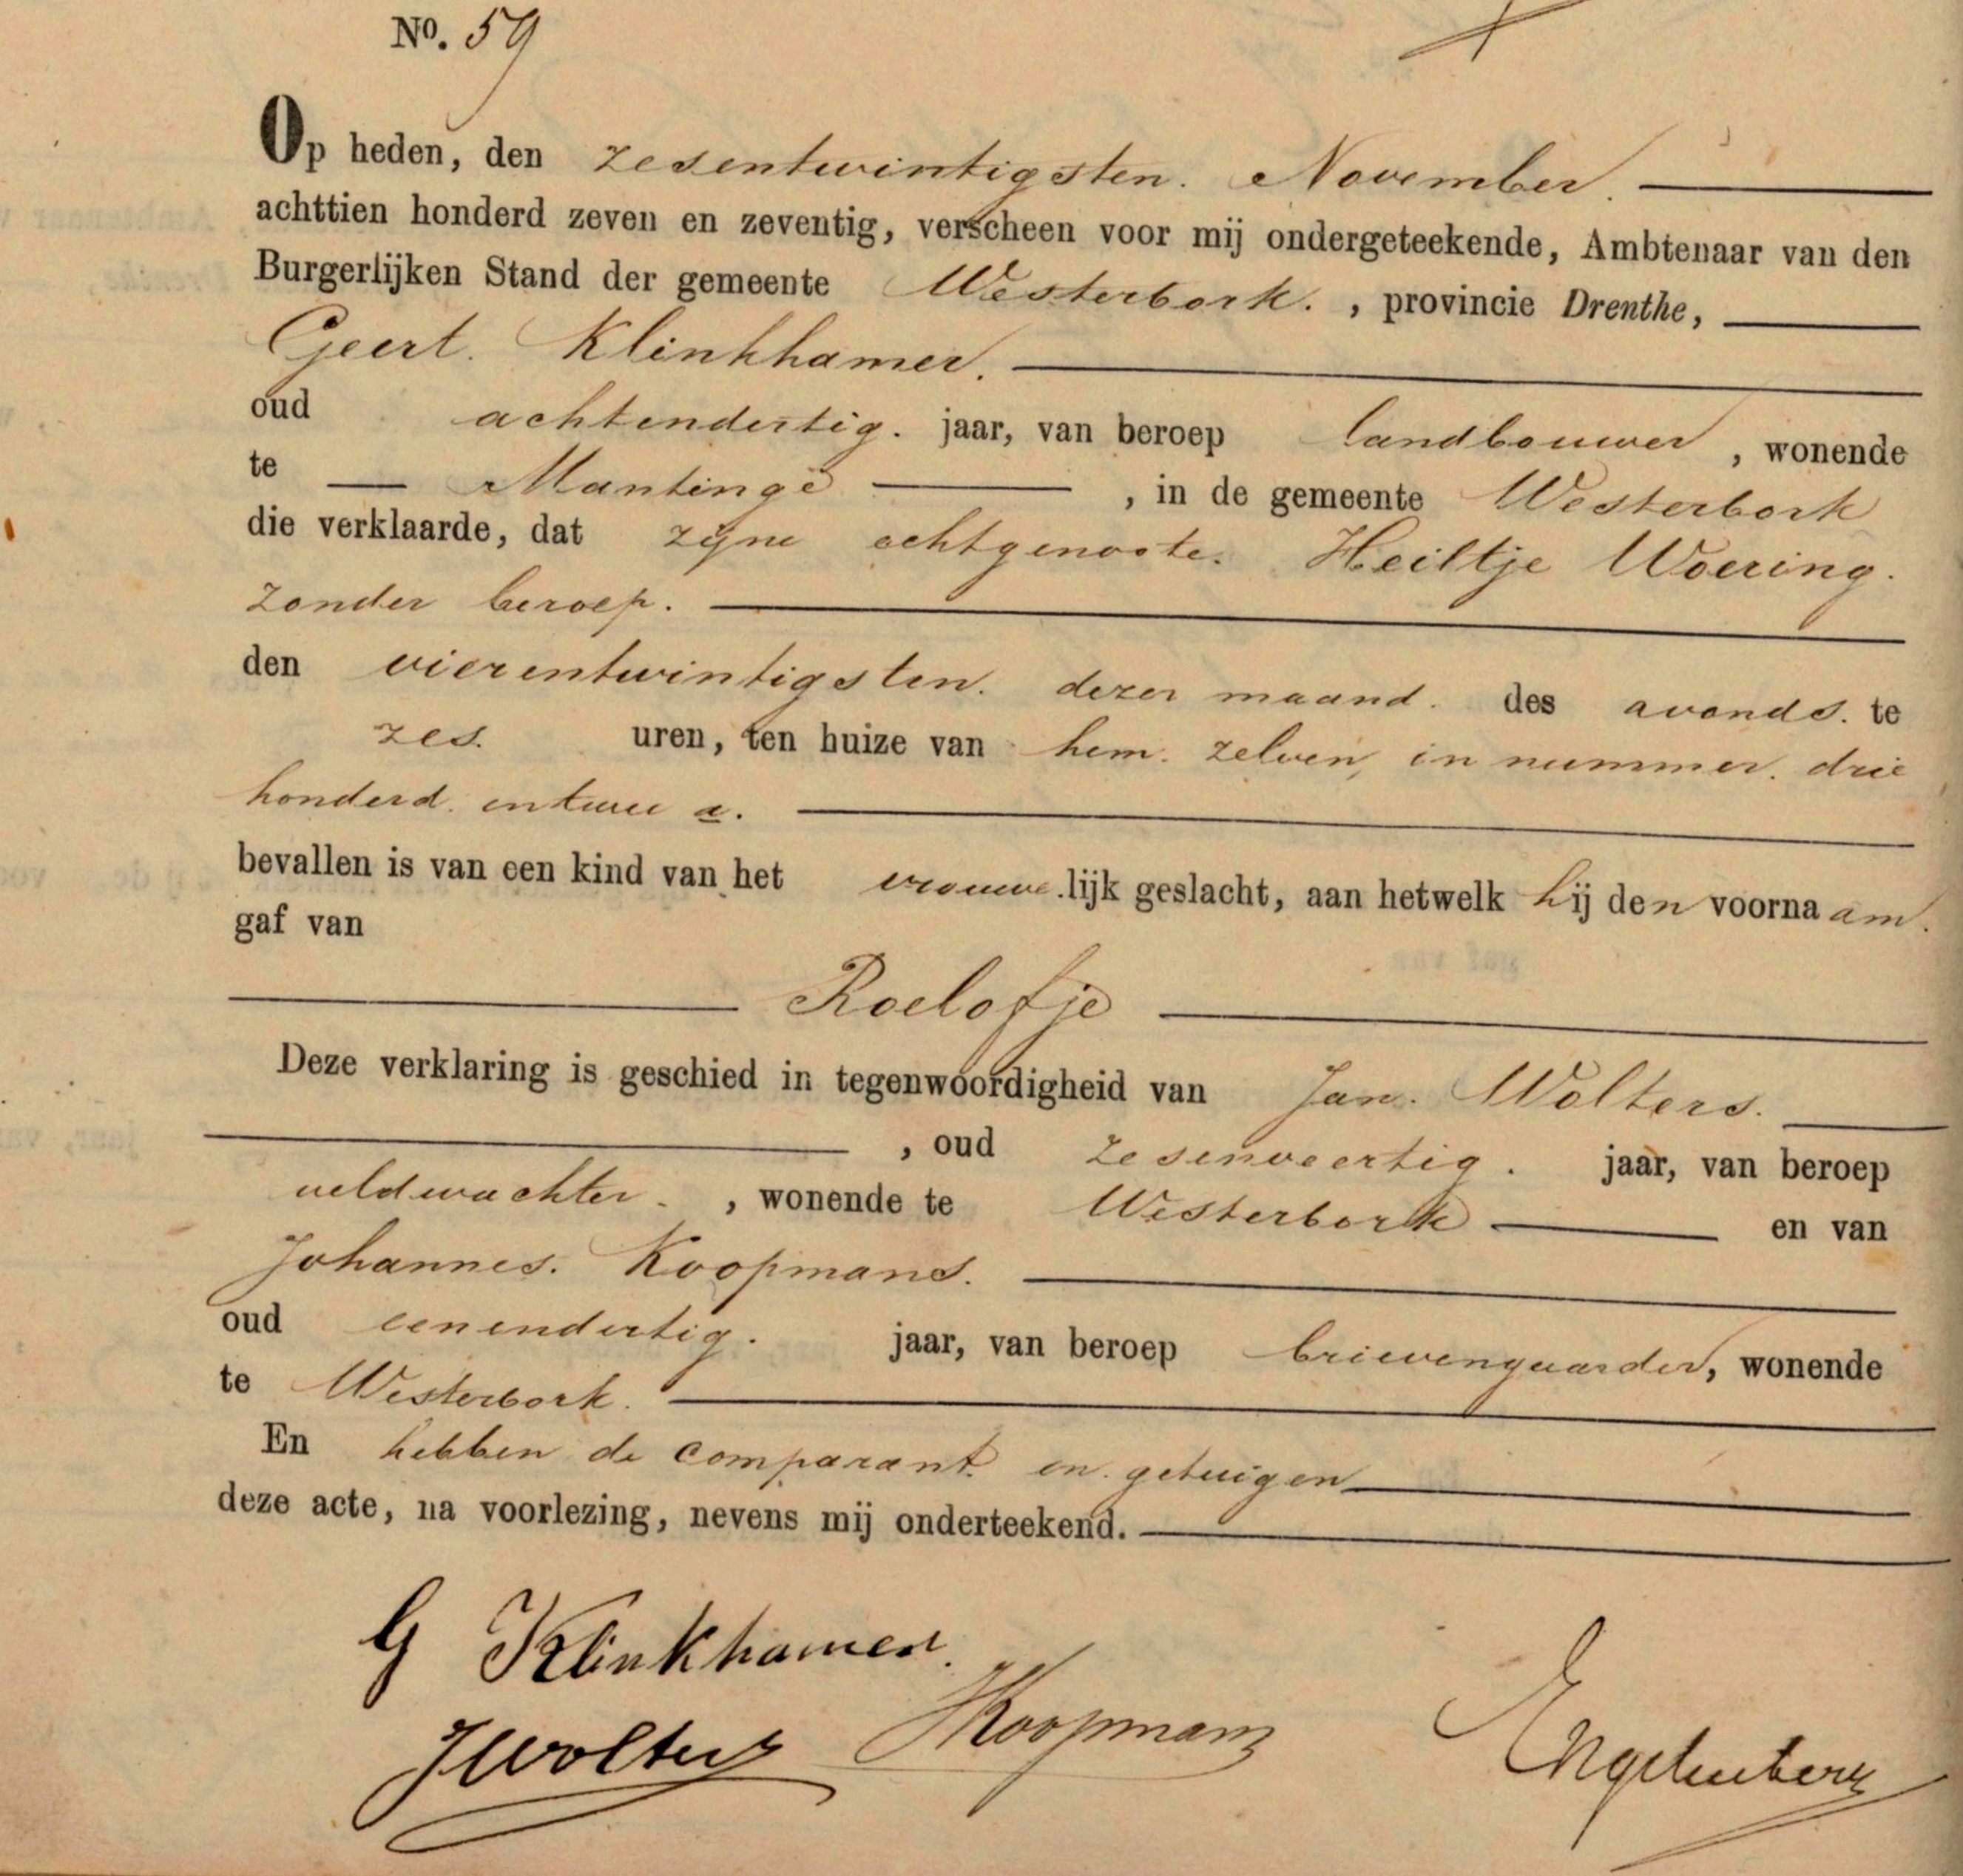 No. 59
Op heden, den zesentwintigsten. November.
achttien honderd zeven en zeventig, verscheen voor mij ondergeteekende, Ambtenaar van den
Burgerlijken Stand der gemeente Westerbork. , provincie Drenthe,
Geert. Klinkhamer.
oud achtendertig. jaar, van beroep landbouwer , wonende
te Mantinge , in de gemeente Westerbork
die verklaarde, dat zijne echtgenoote. Heiltje Woering.
zonder beroep.
den vierentwintigsten. dezer maand. des avonds. te
zes. uren, ten huize van hem. zelven, in nummer. drie
honderd. en twee a.
bevallen is van een kind van het vrouwe.lijk geslacht, aan hetwelk hij den voornaam.
gaf van
Roelofje
Deze verklaring is geschied in tegenwoordigheid van Jan. Wolters.
, oud zesenveertig. jaar, van beroep
veldwachter. , wonende te Westerbork en van
Johannes. Koopmans.
oud eenendertig. jaar, van beroep brievengaarder, wonende
te Westerbork.
En hebben de comparant. en. getuigen
deze acte, na voorlezing, nevens mij onderteekend.
G Klinkhamer.
JWolters JKoopmans
Engelenberg